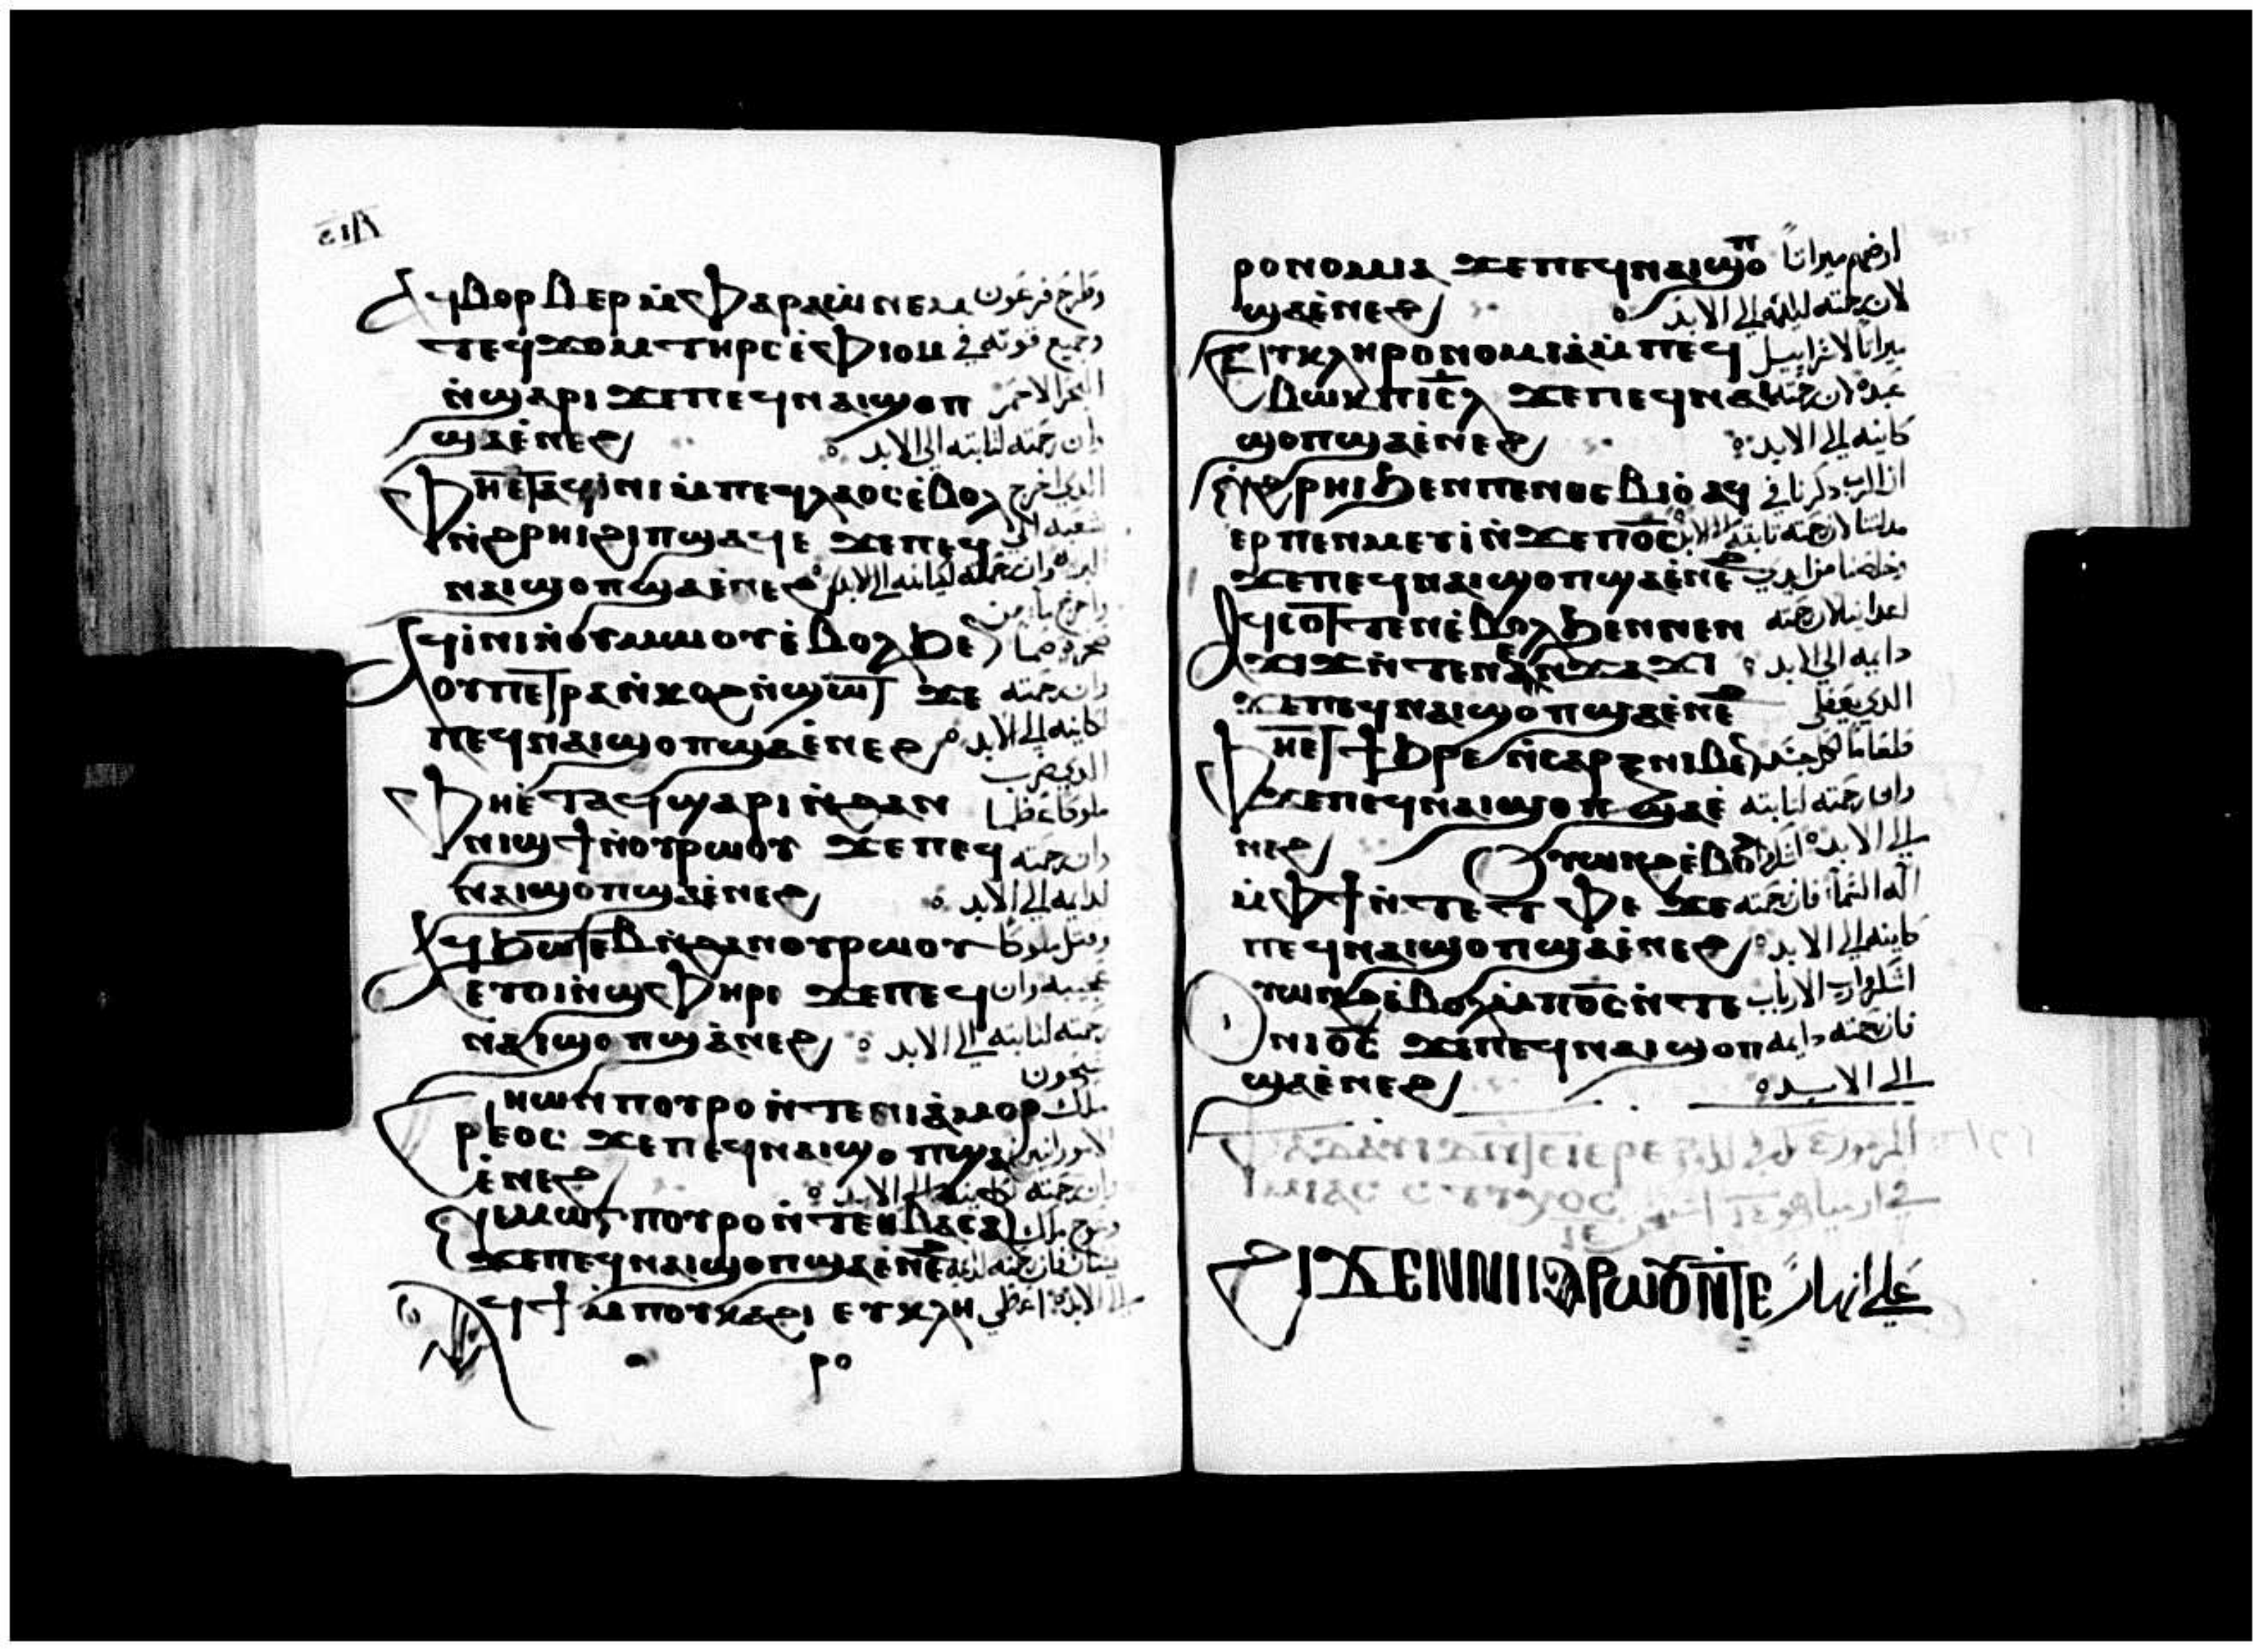 ⲁϥⲃⲟⲣⲃⲉⲣ ⲙ̀ⲫⲁⲣⲁⲱ̀ ⲛⲉⲙ وطرح فرعون
ⲧⲉϥϫⲟⲙ ⲧⲏⲣⲥ ⲉ̀ⲫⲓⲟⲙ وجميع قوته في
ⲛ̀ϣⲁⲣⲓ ϫⲉ ⲡⲉϥⲛⲁⲓ ϣⲟⲡ البحر الاحمر
ϣⲁ ⲉ̀ⲛⲉϩ وان رحمته لثابته الي الابد
ⲫⲏⲉⲧⲁϥⲓⲛⲓ ⲙ̀ⲡⲉϥⲗⲁⲟⲥ ⲉ̀ⲃⲟⲗ الدي اخرج
ⲛ̀ϩⲣⲏⲓ ϩⲓ ⲡϣⲁϥⲉ ϫⲉ ⲡⲉϥ شعبه الي
ⲛⲁⲓ ϣⲟⲡ ϣⲁ ⲉ̀ⲛⲉϩ البريه وان رحمته لكاينه الي الابد
ⲁϥⲓ̀ⲛⲓ ⲛ̀ⲟⲩⲙⲱⲟⲩ ⲉ̀ⲃⲟⲗ ϧⲉⲛ
ⲟⲩⲡⲉⲧⲣⲁ ⲛ̀ⲕⲟϩ ⲛ̀ϣⲱⲧ ϫⲉ وان رحمته
ⲡⲉϥⲛⲁⲓ ϣⲟⲡ ϣⲁ ⲉ̀ⲛⲉϩ كاينه الي الابد
الدي ضرب
ⲫⲏⲉ̀ⲧⲁϥϣⲁⲣⲓ ⲛ̀ϩⲁⲛ ملوكا عظما
ⲛⲓϣϯ ⲛ̀ⲟⲩⲣⲱⲟⲩ ϫⲉ ⲡⲉϥ وان رحمته
ⲛⲁⲓ ϣⲟⲡ ϣⲁ ⲉ̀ⲛⲉϩ لدايه الي الابد
ⲁϥϧⲱⲧⲉⲃ ⲛ̀ϩⲁⲛⲟⲩⲣⲱⲟⲩ وقتل ملوكا
ⲉⲩⲟⲓ ⲛ̀ϣⲫⲏⲣⲓ ϫⲉ ⲡⲉϥ عجيبه وان
ⲛⲁⲓ ϣⲟⲡ ϣⲁ̀ⲛⲉϩ رحمته لثابته الي الابد
سيحون
ⲥⲏⲱⲛ ⲡⲟⲩⲣⲟ ⲛ̀ⲧⲉ ⲛⲓⲁ̀ⲙⲟⲣ ملك
ⲣⲉⲟⲥ ϫⲉ ⲡⲉϥⲛⲁⲓ ϣⲟⲡ ϣⲁ
ⲉ̀ⲛⲉϩ وان رحمته كاينه الي الابد
ⲛⲉⲙ ⲱⲅ ⲡⲟⲩⲣⲟ ⲛ̀ⲧⲉ ⲑⲃⲁⲥⲁⲛ وعوج ملك
ϫⲉ ⲡⲉϥⲛⲁⲓ ϣⲟⲡ ϣⲁ ⲉ̀ⲛⲉϩ
ⲁϥϯ ⲙ̀ⲡⲟⲩⲕⲁϩⲓ ⲉⲩⲕⲗⲏ الي الابد اعطي
ⲣⲟ
ⲣⲟⲛⲟⲙⲓⲁ ϫⲉ ⲡⲉϥⲛⲁⲓ ϣⲟⲡ ارضهم ميراثا
ϣⲁ ⲉ̀ⲛⲉϩ لان رحمته الي الابد
ⲉⲩⲕⲗⲏⲣⲟⲛⲟⲙⲓⲁ ⲙ̀ⲡⲉϥ ميراثا لاسراييل
ⲃⲱⲕ ⲡⲓⲥ̅ⲗ̅ ϫⲉ ⲡⲉϥⲛⲁⲓ عبده لان رحمته
ϣⲟⲡ ϣⲁ ⲉ̀ⲛⲉϩ كاينه الي الابد
ⲛ̀ϩⲣⲏⲓ ϧⲉⲛ ⲡⲉⲛⲑⲉⲃⲓⲟ̀ ⲁϥ ان الرب دكرنا في
ⲉⲣⲡⲉⲛⲙⲉⲩⲓ̀ ⲛ̀ϫⲉ ⲡⲟ̅ⲥ̅ مدلتنا لان رحمته ثابته الي الابد
ϫⲉ ⲡⲉϥⲛⲁⲓ ϣⲟⲡ ϣⲁ ⲉ̀ⲛⲉϩ وخلصنا من ايدي
ⲁϥⲥⲟⲧⲧⲉⲛ ⲉ̀ⲃⲟⲗ ϧⲉⲛ ⲛⲉⲛ اعداينا لان رحمته
ϫⲓϫ ⲛ̀ⲧⲉ ⲛⲉⲛϫⲁϫⲓ دايه الي الابد
ϫⲉ ⲡⲉϥⲛⲁⲓ ϣⲟⲡ ϣⲁ ⲉ̀ⲛⲉϩ الدي يعطي
ⲫⲏⲉⲧϯϧⲣⲉ ⲛ̀ⲥⲁⲣⲝ ⲛⲓⲃⲉⲛ طعاما لكل جسد
ϫⲉ ⲡⲉϥⲛⲁⲓ ϣⲟⲡ ϣⲁ ⲉ̀ وان رحمته لثابته
ⲛⲉϩ الي الابد اشكروا
ⲟⲩⲱⲛϩ ⲉ̀ⲃⲟⲗ
ⲙ̀ⲫϯ ⲛ̀ⲧⲉ ⲧⲫⲉ ϫⲉ اله السما فان رحمته
ⲡⲉϥⲛⲁⲓ ϣⲟⲡ ϣⲁ ⲉ̀ⲛⲉϩ كاينه الي الابد
ⲟⲩⲱⲛϩ ⲉ̀ⲃⲟⲗ ⲙ̀ⲡⲟ̅ⲥ̅ ⲛ̀ⲧⲉ اشكروا رب الارباب
ⲛⲓⲟ̅ⲥ̅ ϫⲉ ⲡⲉϥⲛⲁⲓ ϣⲟⲡ فان رحمته دايه
ϣⲁ ⲉ̀ⲛⲉϩ الي الابد
ϩⲓϫⲉⲛ ⲛⲓⲓⲁⲣⲱⲟⲩ ⲛ̀ⲧⲉ علي انهار